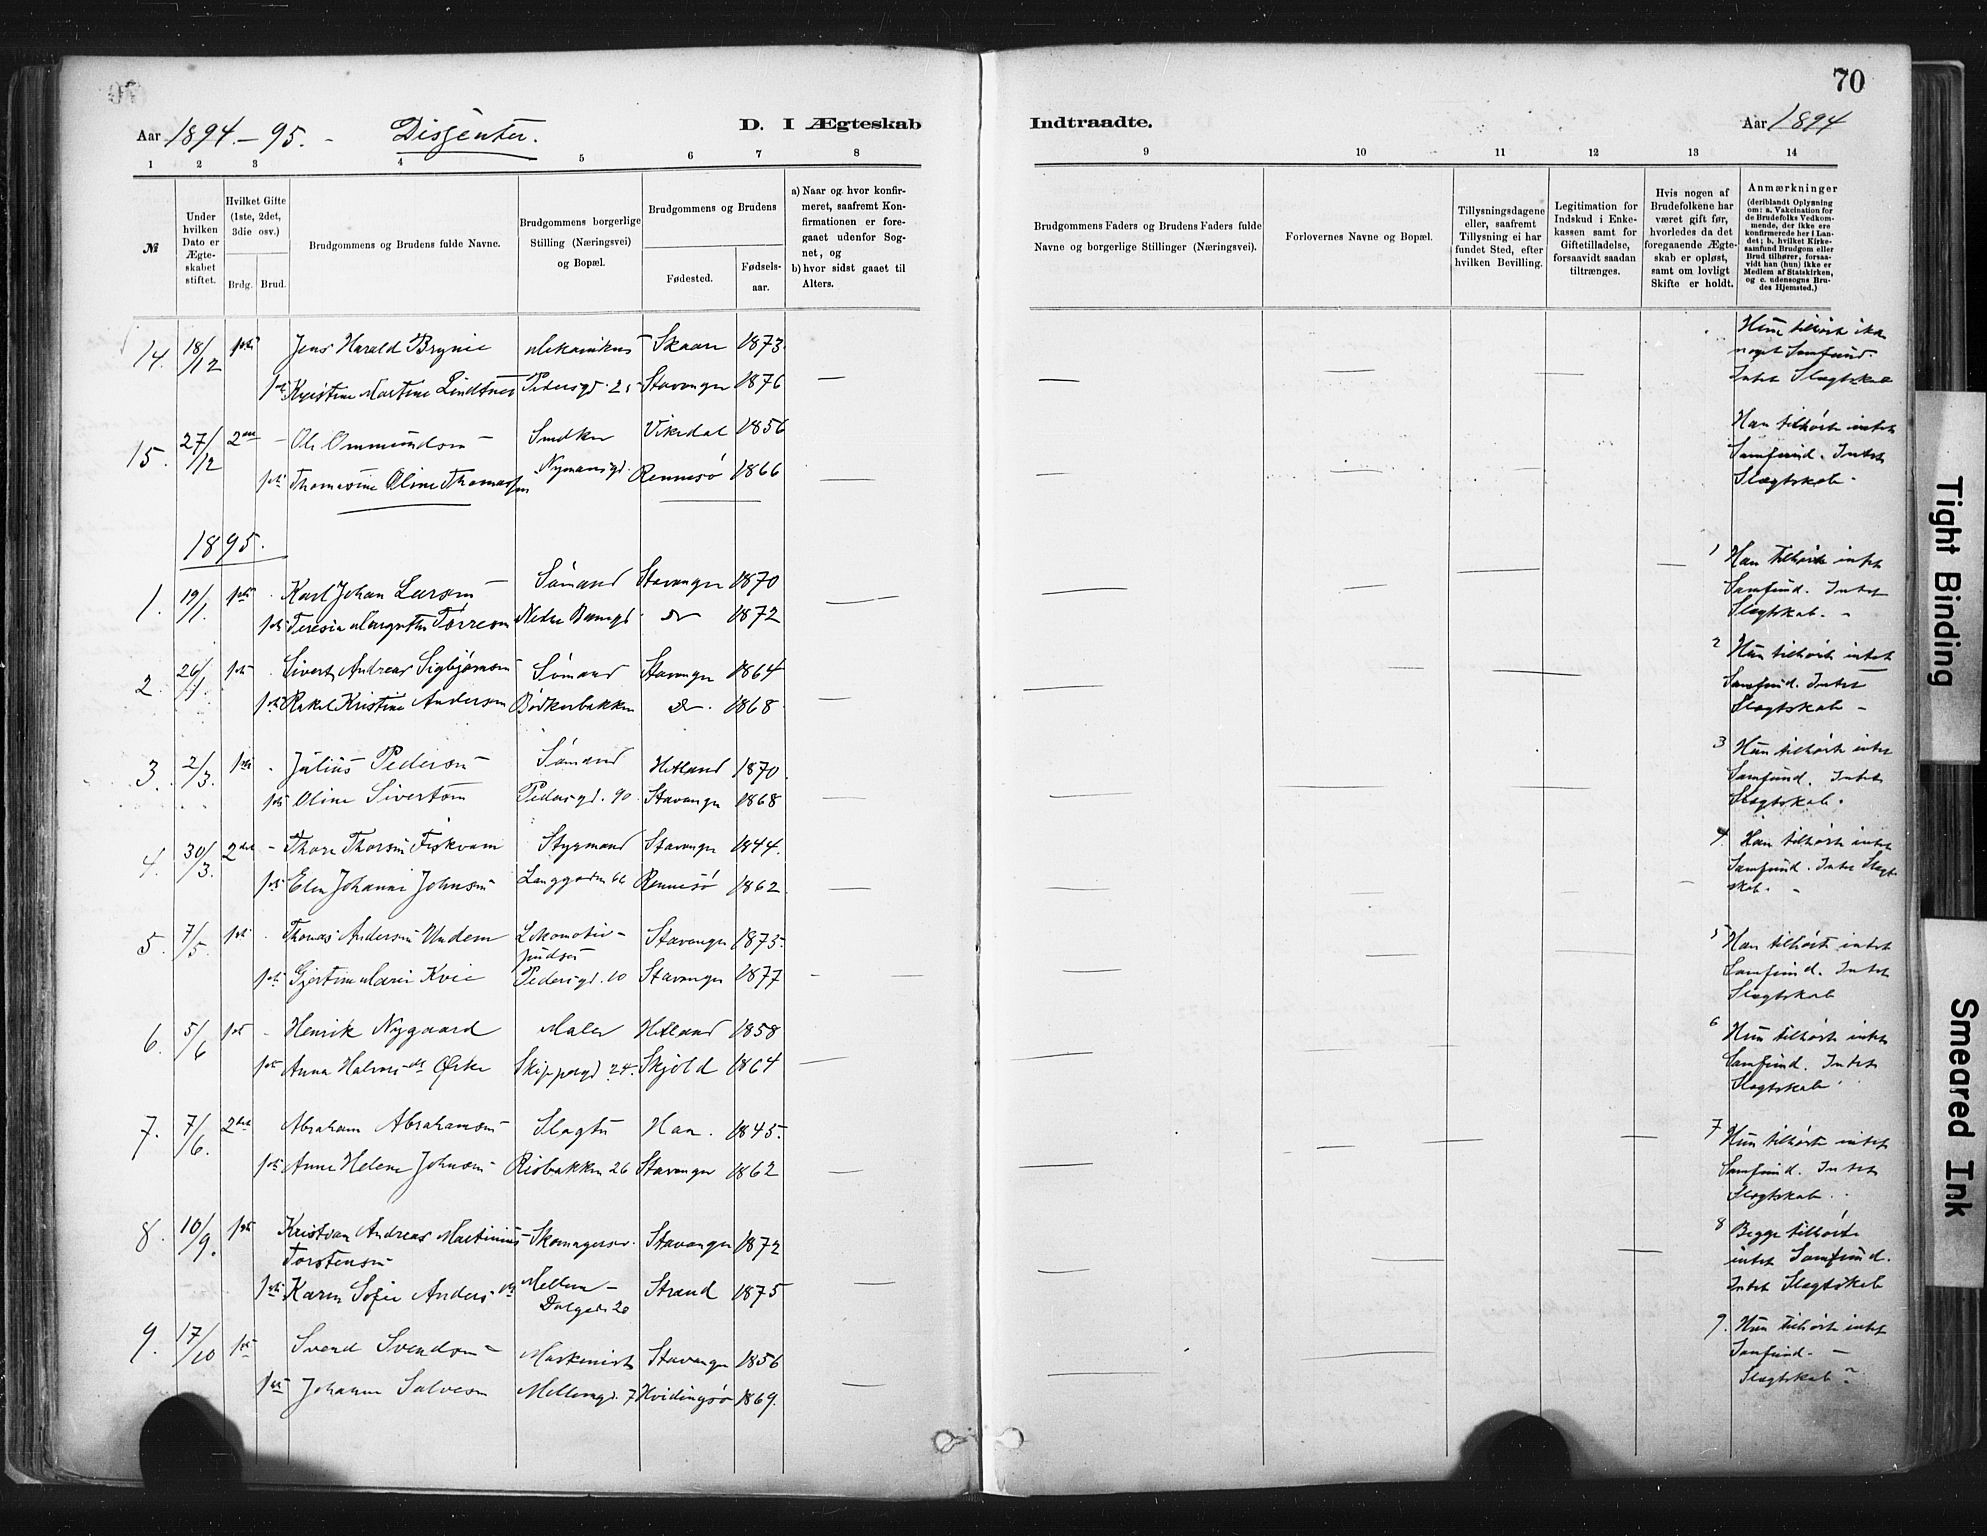 70
Aar 1894-95. - Dissenter. D. I Ægteskab Indtraadte. Aar 1894
1 2 3 4 5 6 7 8 9 10 11 12 13 14
№
Under hvilken Dato er Ægteskabet stiftet.
Hvilket Gifte (1ste, 2det, 3die osv.)
Brdg. Brud.
Brudgommens og Brudens fulde Navne.
Brudgommens borgerlige Stilling (Næringsvei) og Bopæl.
Brudgommens og Brudens
Fødested. Fødselsaar.
a) Naar og hvor konfirmeret, saafremt Konfirmationen er foregaaet udenfor Sognet, og
b) hvor sidst gaaet til Alters.
Brudgommens Faders og Brudens Faders fulde Navne og borgerlige Stillinger (Næringsvei).
Forlovernes Navne og Bopæl.
Tillysningsdagene eller, saafremt Tillysning ei har fundet Sted, efter hvilken Bevilling.
Legitimation for Indskud i Enkekassen samt for Giftetilladelse, forsaavidt saadan tiltrænges.
Hvis nogen af Brudefolkene har været gift før, hvorledes da det foregaaende Ægteskab er opløst, samt om lovligt Skifte er holdt.
Anmærkninger (deriblandt Oplysning om: a. Vakcination for de Brudefolks Vedkommende, der ikke ere konfirmerede her i Landet; b. hvilket Kirkesamfund Brudgom eller Brud tilhører, forsaavidt han (hun) ikke er Medlem af Statskirken, og c. udensogns Brudes Hjemsted.)
14. 18/12 1ste Jens Harald Brynie Mekanikus Skaare 1873. Hun tilhørte ikke
noget Samfund.
1ste Kristine Martine Lindtner Pedersgd. 25 Stavanger 1876 — Intet Slægtskab
15. 27/12 2den - Ole Ommundsen Snedker Vikedal 1856 Han tilhørte intet
Samfund. Intet
1ste Thomasine Oline Thomassen Nymansgd. Rennesø 1866 — Slægtskab.
1895.
1. 19/1. 1ste Karl Johan Larsen Sømand Stavanger 1870 1 Han tilhørte intet
Samfund. Intet
1ste Teresia Margrethe Torresen Nedre Banegd. do 1872 — Slægtskab. -
2. 26/1. 1ste Sivert Andreas Sigbjørnsen Sømand Stavanger 1864 2 Hun tilhørte intet
Samfund. Intet
1ste Rakel Kristine Andersen Bødkerbakken do. 1868. — Slægtskab -
3. 2/3. 1ste Julius Pedersen Sømand Hetland 1870. 3 Hun tilhørte intet
Samfund. Intet
1ste Oline Sivertsen Pedersgd. 90 Stavanger 1868 — Slægtskab.
4. 30/3. 2det - Thore Thorsen Fiskvam Styrmand Stavanger 1844. 4. Han tilhørte intet
Samfund. Intet Slægt
1ste Elen Johanne Johnsen Langgaden 66 Rennesø 1862. — skab. -
5. 7/5. 1ste Thomas Andersen Undem Lokomotiv- Stavanger 1873. 5 Han tilhørte intet
pudser Samfund. Intet
1ste Gjertine Marie Kvie Pedersgd. 10 Stavanger 1877 - — Slægtskab
6. 5/6 1ste - Henrik Nygaard Maler Hetland 1858 6 Hun tilhørte intet
Samfund. Intet
1ste Anna Halvorsdtr Ørke Skippergd 24. Skjold 1864 — Slægtskab.
7. 7/6. 2det Abraham Abrahamsen Slagter Haa. 1845. 7 Hun tilhørte intet
Samfund. Intet
1ste Anne Helene Johnsen Risbakken 26 Stavanger 1862 — Slægtskab.
8. 10/9. 1ste Kristian Andreas Martinius Skomagersv. Stavanger 1872 8 Begge tilhørte
Torstensen intet Samfund.
1ste Karen Sofie Andersdtr Mellem- Strand 1875 — Intet Slægtskab
Dalgade 20
9. 17/10 1ste Svend Svendsen - Maskinist Stavanger 1856 9. Hun tilhørte intet
Samfund. -
1ste Johanne Salvesen Mellemgd. 7 Hvidingsø 1869. — Slægtskab?
Tight Binding
Smeared Ink